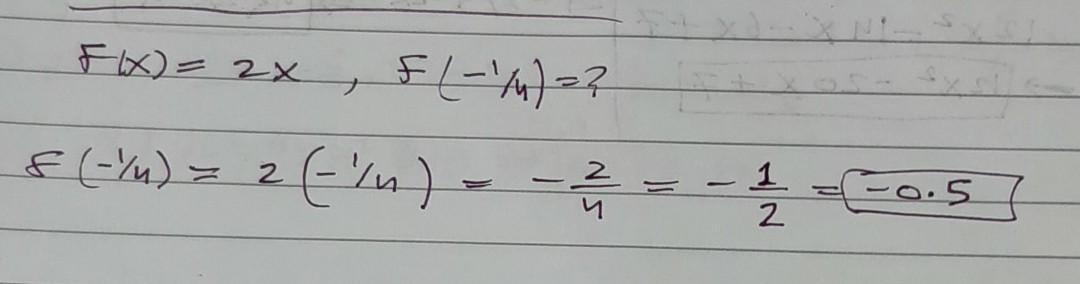 F(x) = 2x , F(-1/4) = ?
F(-1/4) = 2(-1/4) = -2/4 = -1/2 = -0.5